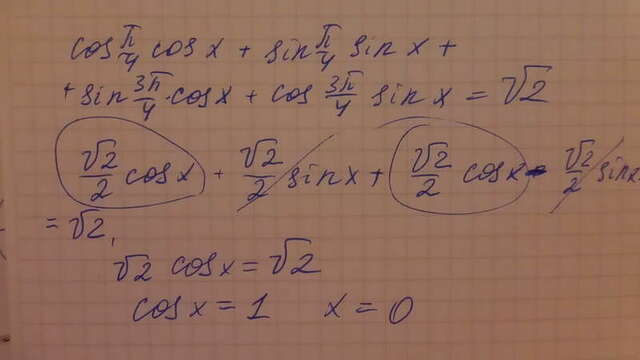 cos π/4 cos x + sin π/4 sin x +
+ sin 3π/4 · cos x + cos 3π/4 sin x = √2
√2/2 cos x + √2/2 sin x + √2/2 cos x - √2/2 sin x
= √2,
√2 cos x = √2
cos x = 1 x = 0